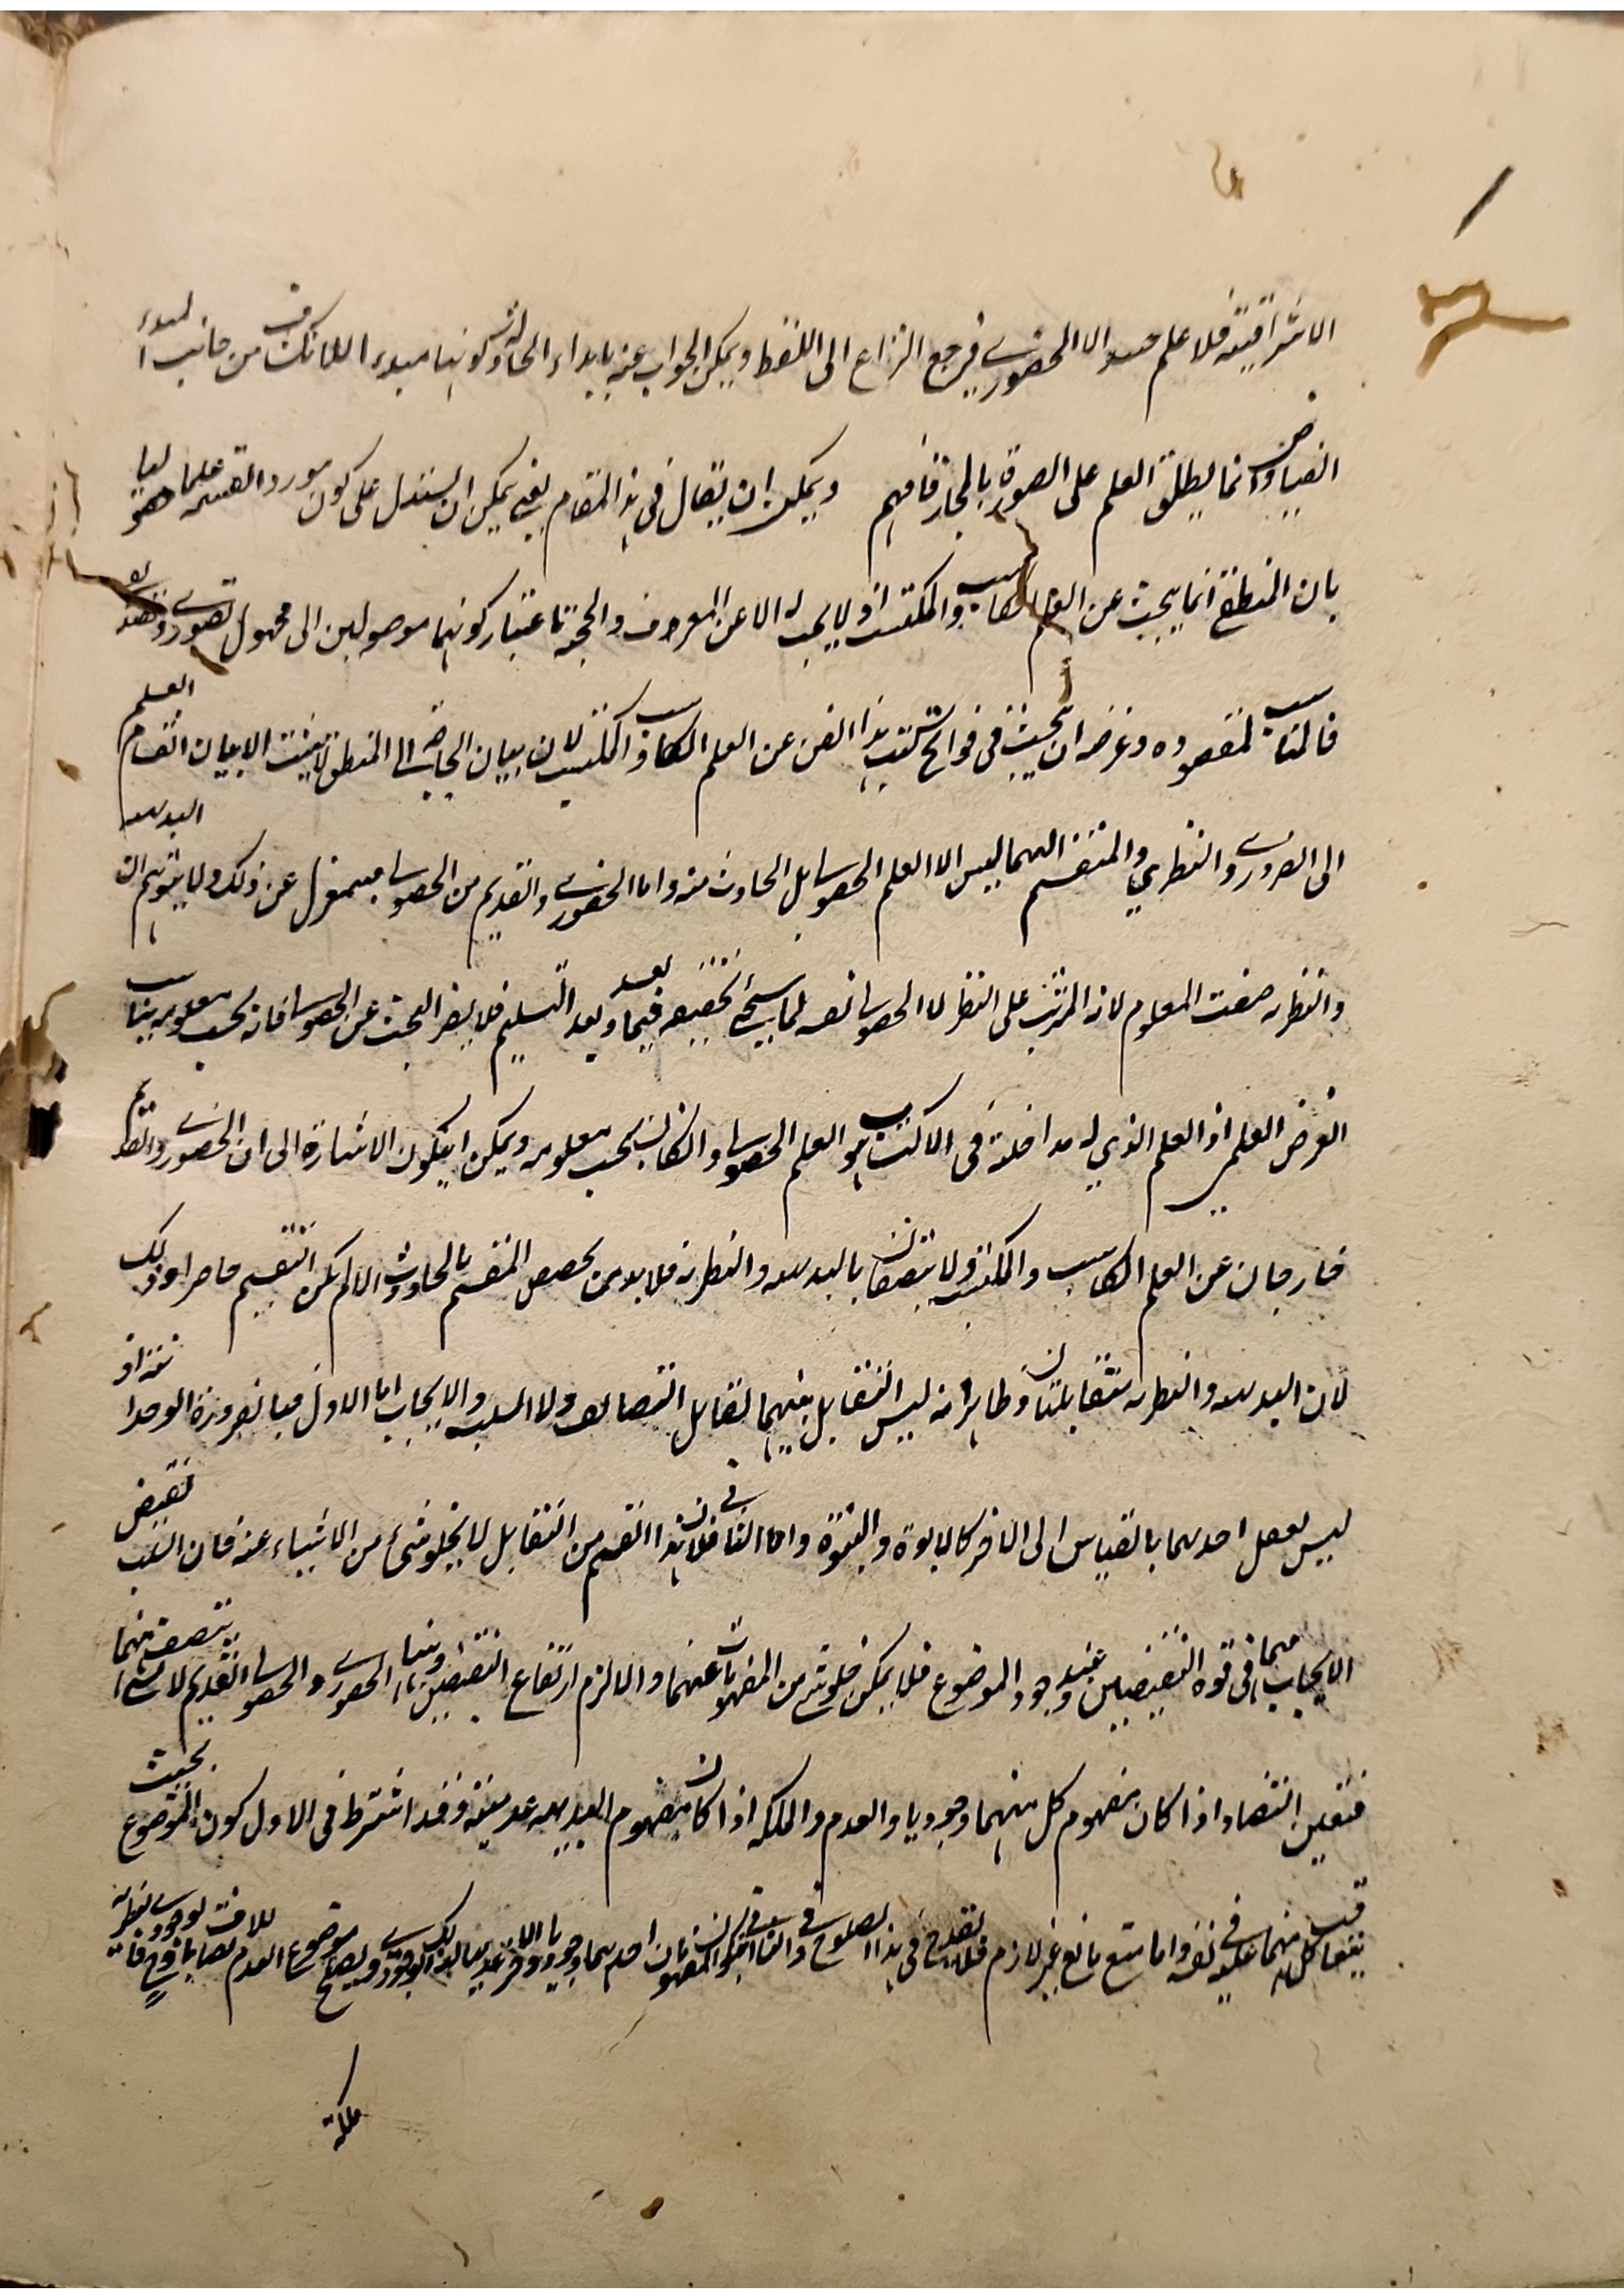 الاشراقية فلا علم عنده الا الحضوري فرجع النزاع الى اللفظ ويمكن الجواب عنه بابداء الحالة وكونها مبدء الانكشاف من جانب المبدء
الفياض وانما يطلق العلم على الصورة بالمجاز فافهم ويمكن ان يقال في هذا المقام يعني يمكن ان يستدل على كون مورد القسمة علما حصوليا
بان المنطقي انما يبحث عن العلم الكاسب والمكتسب اذ لا يبحث الا عن المعرف والحجة باعتبار كونهما موصولين الى مجهول تصوري وتصديقي
فالمناسب لمقصوده وغرضه ان يبحث في فواتح كتب هذا الفن عن العلم الكاسب والمكتسب لان بيان الحاجة الى المنطق لا يثبت الا ببيان انقسام العلم
الى الضروري والنظري والمنقسم اليهما ليس الا العلم الحصولي بل الحادث منه واما الحضوري والقديم من الحصولي فبمعزل عن ذلك ولا يتوهم ان البديهية
والنظرية صفت المعلوم لانه المترتب على النظر لا الحصولي نفسه لما سيجئ تحقيقه فيما بعد وبعد التسليم فلا يضر البحث عن الحصولي فانه بحسب معلومه يناسب
الغرض العلمي اذ العلم الذي له مداخلة في الاكتساب هو العلم الحصولي وان كان بحسب معلومه ويمكن ان يكون الاشارة الى ان الحضوري والقديم
خارجان عن العلم الكاسب والمكتسب ولا يتصفان بالبديهية والنظرية فلا بد من تخصيص المقسم بالحادث والا لم يكن التقسيم حاصرا وذلك
لان البديهية والنظرية متقابلتان وظاهر انه ليس التقابل بينهما تقابل التضايف ولا السلب والايجاب اما الاول فبالضرورة الوجدانية اذ
ليس تعقل احدهما بالقياس الى الاخر كالابوة والبنوة واما الثاني فلان هذا القسم من التقابل لا يخلو شئ من الاشياء عنه فان السلب نقيض
الايجاب فهما في قوة النقيضين عند وجود الموضوع فلا يمكن خلو شئ من المفهومات عنهما والا لزم ارتفاع النقيضين وهنا الحضوري والحصولي القديم لا يتصف بشئ منهما
فتعين التضاد اذا كان مفهوم كل منهما وجوديا والعدم والملكة اذا كان مفهوم البديهية عدمية وقد اشترط في الاول كون الموضوع بحيث
يتعاقب كل منهما عليه في نفسه واما متنع مانع غير لازم فلا يقدح في هذا الصلوح وفي الثاني
ملكة